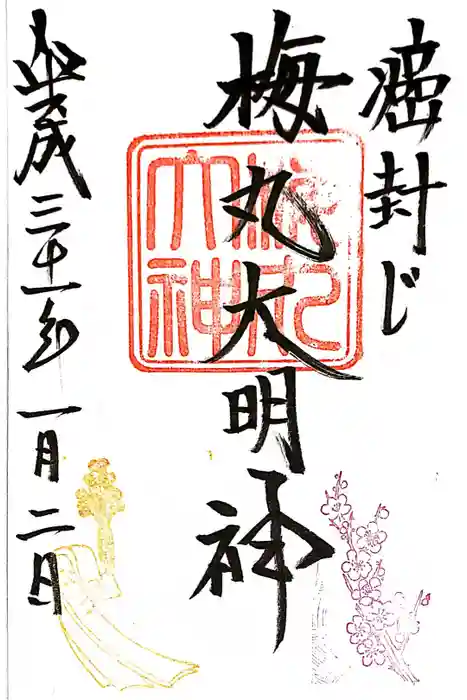 癌封じ
梅丸大明神
平成三十一年一月二日
梅丸
大神